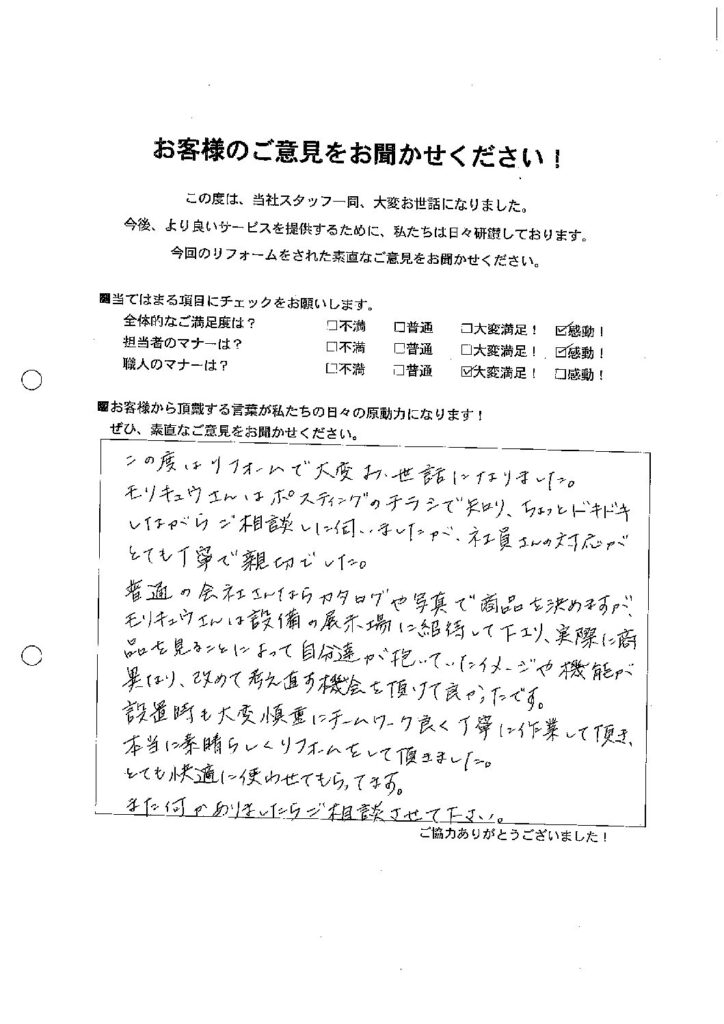 お客様のご意見をお聞かせください！
この度は、当社スタッフ一同、大変お世話になりました。
今後、より良いサービスを提供するために、私たちは日々研鑽しております。
今回のリフォームをされた素直なご意見をお聞かせください。
■当てはまる項目にチェックをお願いします。
全体的なご満足度は？ □不満 □普通 □大変満足！ ☑感動！
担当者のマナーは？ □不満 □普通 □大変満足！ ☑感動！
職人のマナーは？ □不満 □普通 ☑大変満足！ □感動！
■お客様から頂戴する言葉が私たちの日々の原動力になります！
ぜひ、素直なご意見をお聞かせください。
この度はリフォームで大変お世話になりました。
モリキュウさんはポスティングのチラシで知り、ちょっとドキドキ
しながらご相談しに伺いましたが、社員さんの対応が
とても丁寧で親切でした。
普通の会社さんならカタログや写真で商品を決めますが、
モリキュウさんは設備の展示場に招待して下さり、実際に商
品を見ることによって自分達が抱いていたイメージや機能が
異なり、改めて考え直す機会を頂けて良かったです。
設置時も大変慎重にチームワーク良く丁寧に作業して頂き、
本当に素晴らしくリフォームをして頂きました。
とても快適に使わせてもらってます。
また何かありましたらご相談させて下さい。
ご協力ありがとうございました！